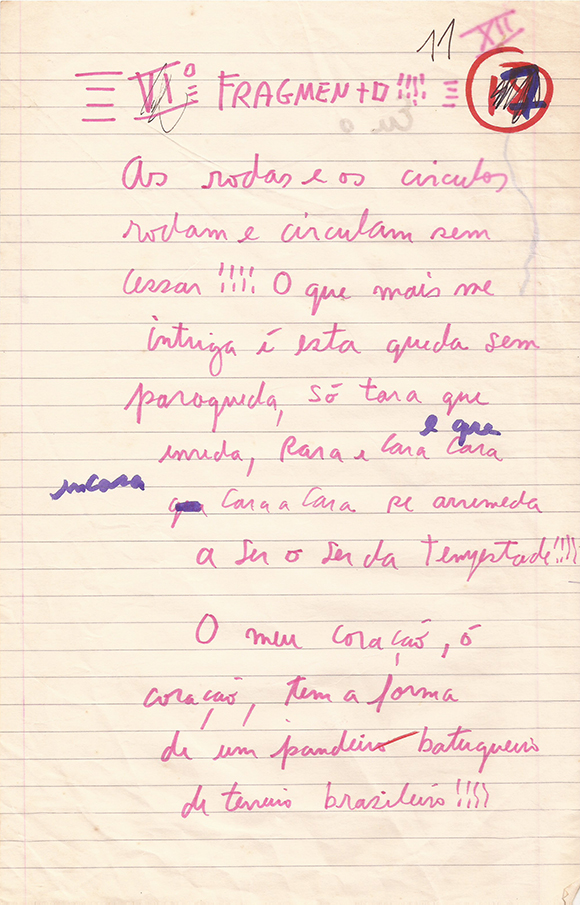 11 XII
VIº FRAGMENTO!!!! 7
As rodas e os circulos
rodam e circulam sem
cessar!!!! O que mais me
intriga é esta queda sem
paraqueda, só tara que
e que
enreda, Rara e Cara Cara
encara
Cara a Cara se arremeda
a Ser o Ser da Tempestade!!!!
O meu coração, ó
coração, tem a forma
de um pandeiro batuqueiro
de terreiro brasileiro!!!!